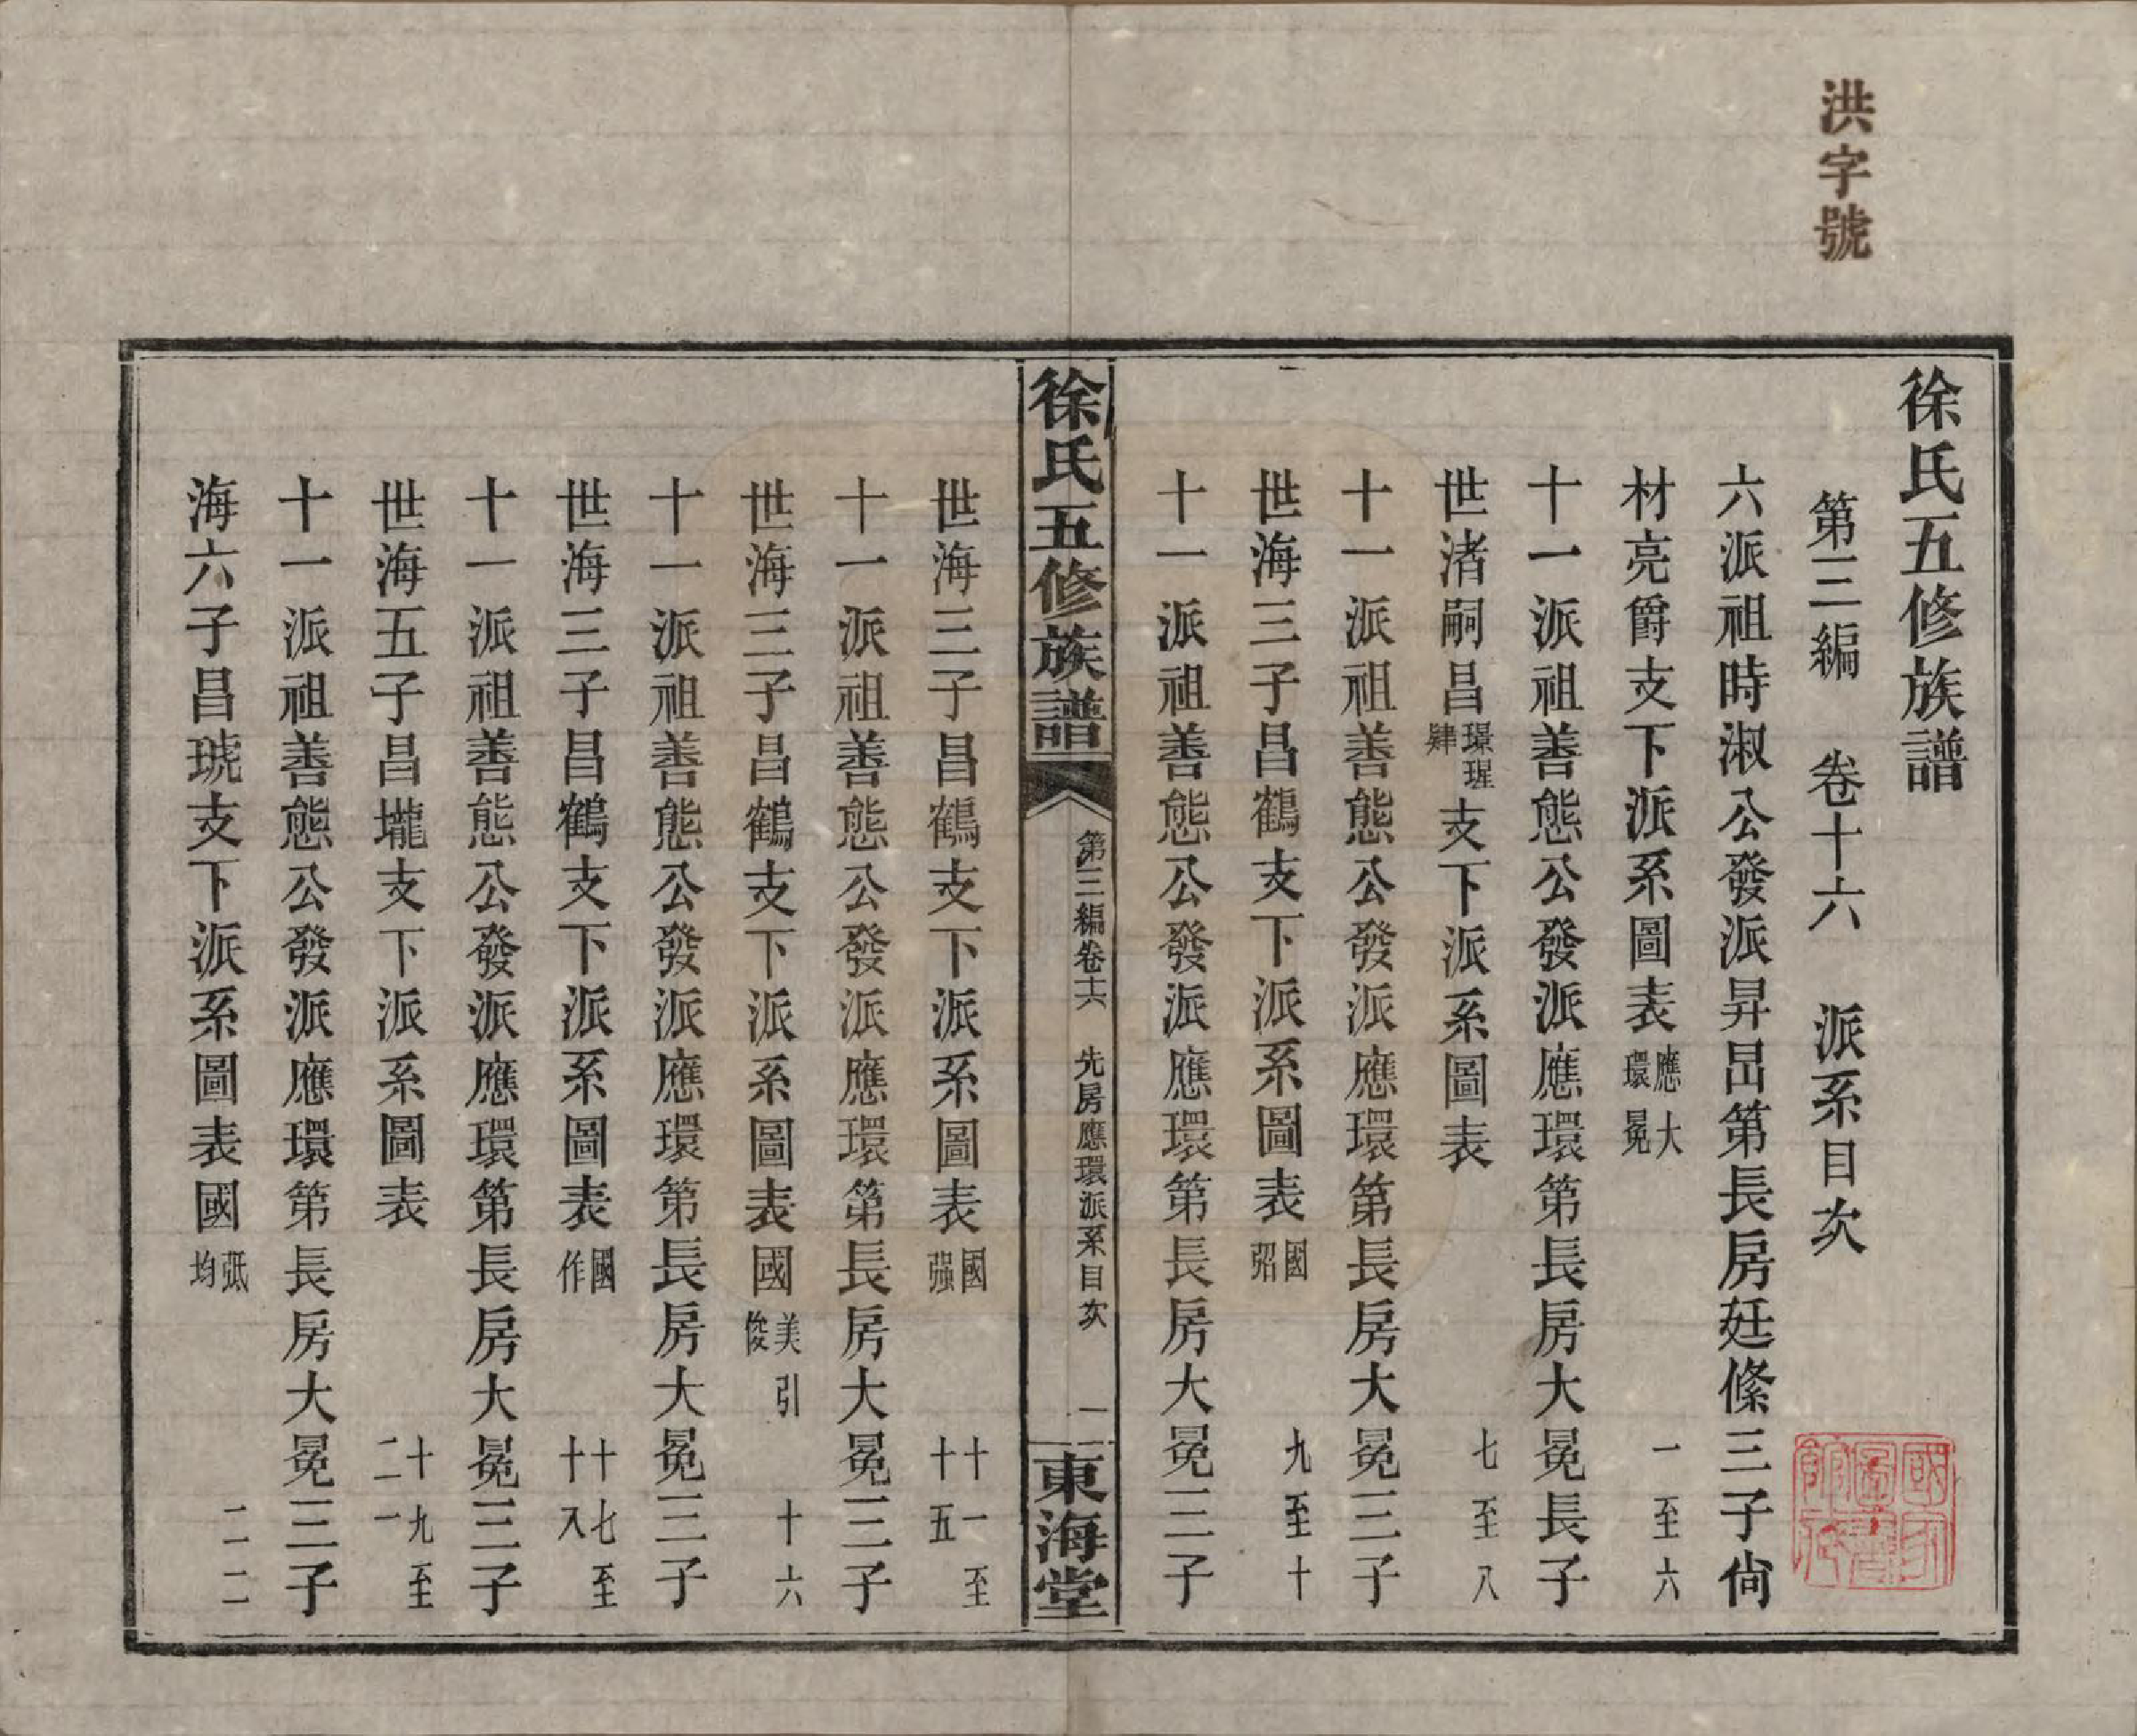 洪字號
徐氏五修族譜
第三編 卷十六 派系目次
六派祖時淑公發派昇㞮第長房廷絛三子尙
材亮爵支下派系圖表應大環冕 一至六
十一派祖善態公發派應環第長房大冕長子
世渚嗣昌璟瑆肄支下派系圖表 七至八
十一派祖善態公發派應環第長房大冕三子
世海三子昌鶴支下派系圖表國弨 九至十
十一派祖善態公發派應環第長房大冕三子
徐氏五修族譜 第三編卷十六 先房應環派系目次 一 東海堂
世海三子昌鶴支下派系圖表國强 十一至十五
十一派祖善態公發派應環第長房大冕三子
世海三子昌鶴支下派系圖表國美引俊 十六
十一派祖善態公發派應環第長房大冕三子
世海三子昌鶴支下派系圖表國作 十七至十八
十一派祖善態公發派應環第長房大冕三子
世海五子昌壠支下派系圖表 十九至二一
十一派祖善態公發派應環第長房大冕三子
海六子昌琥支下派系圖表國弤均 二二